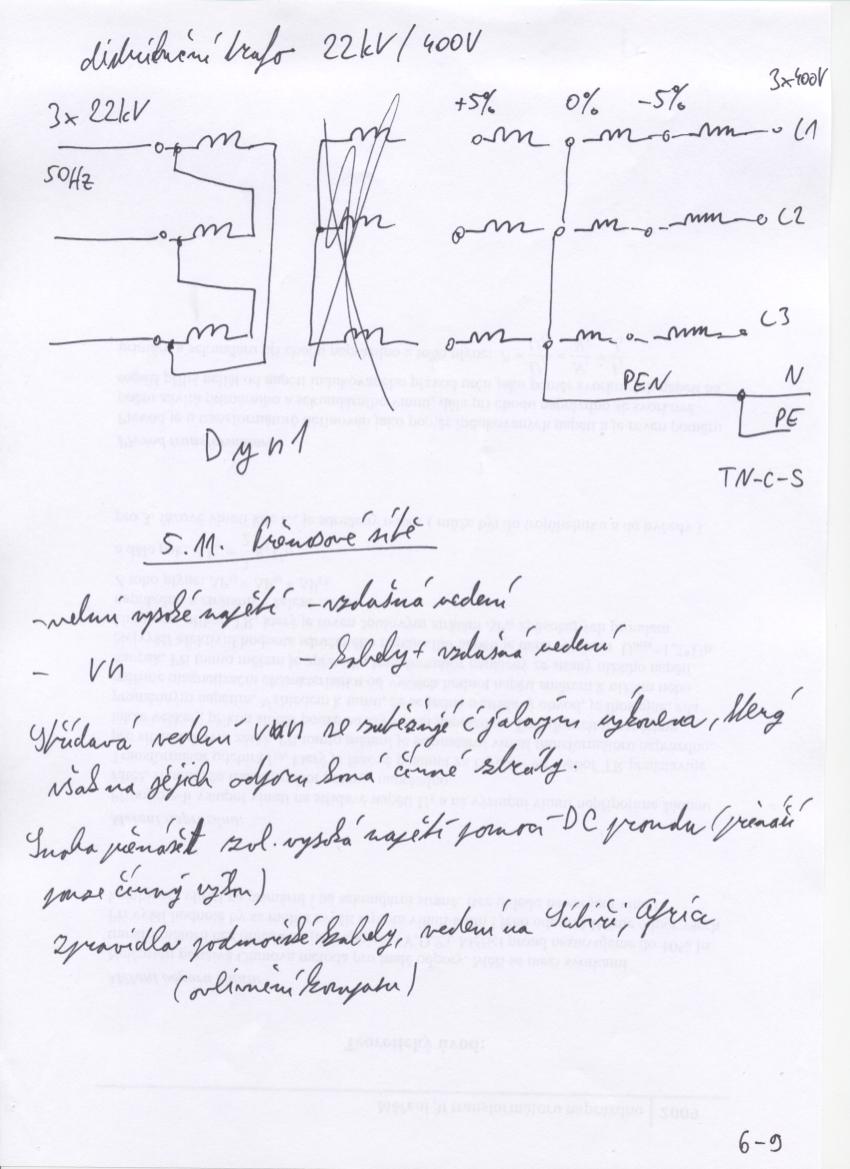 distribuční trafo 22kV/400V
3x400V
+5% 0% -5%
3x22kV
L1
50Hz
L2
L3
PEN N
PE
Dyn1
TN-C-S
5.11. Přenosové sítě
- velmi vysoké napětí - vzdušná vedení
- VN - kabely + vzdušná vedení
Střídavá vedení VVN se zatěžuje jalovým výkonem, který
však na jejich odporu koná činné ztráty.
Snaha přenášet zvl. vysoká napětí pomocí DC proudu (přenáší
pouze činný výkon)
zpravidla podmořské kabely, vedení na Sibiři, Africe
(ovlivnění kompasu)
6-9